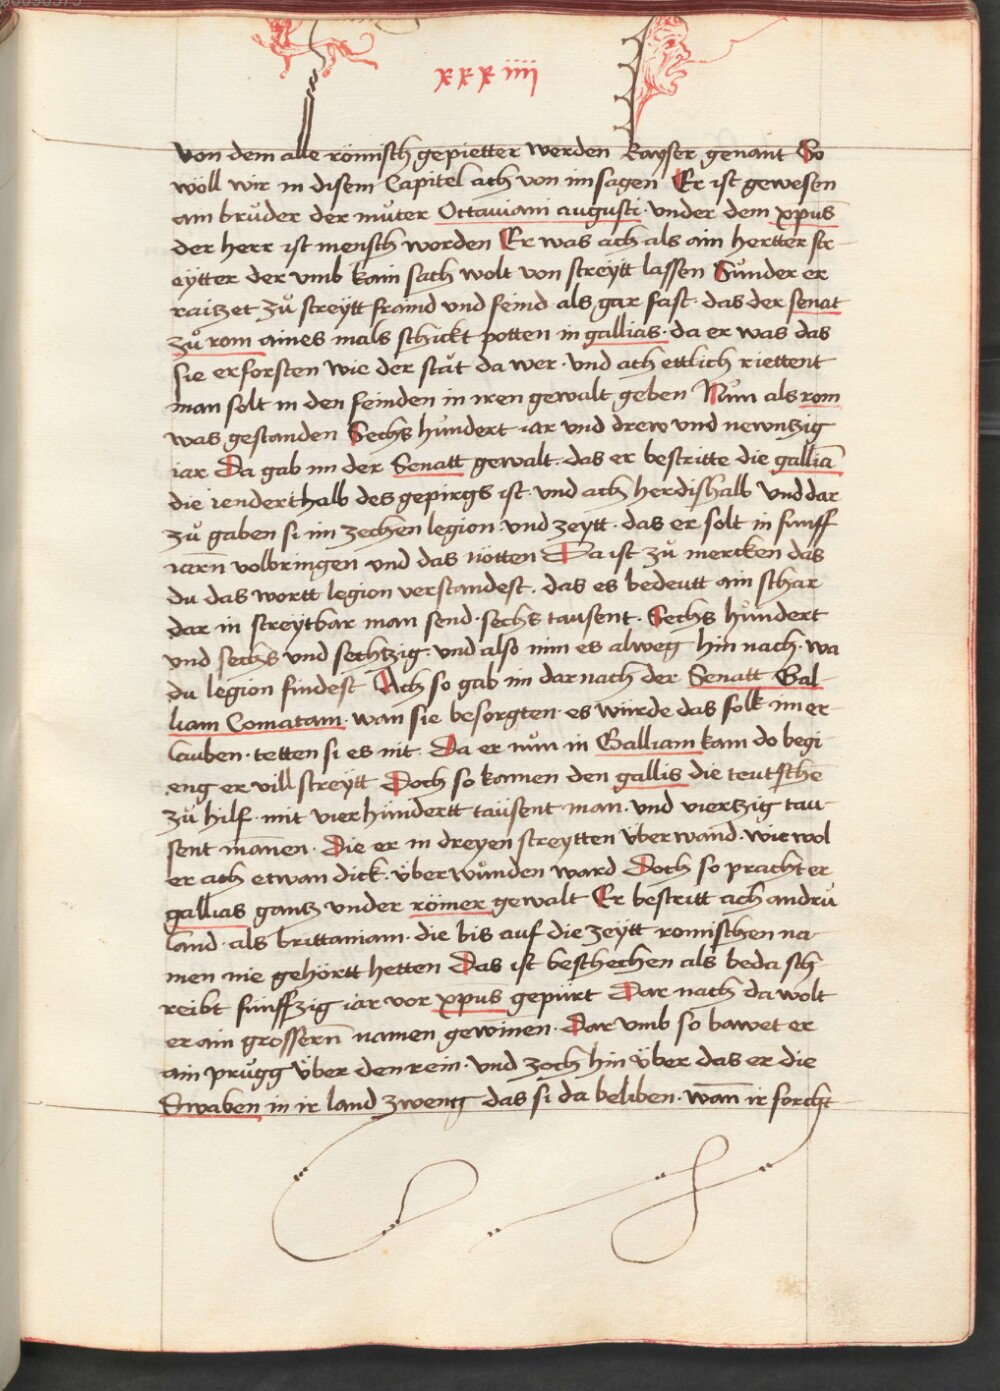 xxxiiii
von dem alle römisch gepietter werden Kayser genant So
wöll wir in disem Capitel ach von im sagen Er ist gewesen
ain brůder der můter Ottaviani augusti · vnder dem xpus
der herr ist mensch worden Er was ach als ain hertter str
eytter der vmb kain sach wolt von streytt lassen Sůnder er
raitzet zů streytt fraind vnd feind als gar fast · das der senat
zů rom aines mals schickt potten in gallias · da er was das
sie erforsten wie der stät da wer · vnd ach ettlich riettent
man solt in den feinden in iren gewalt geben Nůn als rom
was gestanden Sechs hůndert iar vnd drew vnd newnzig
iar Da gab im der Senatt gewalt · das er bestritte die galliā
die ienderthalb des gepirgs ist · vnd ach herdishalb vnd dar
zů gaben si im zechen legion vnd zeytt · das er solt in fünff
iarn̄ volbringen vnd das nötten Da ist zů mercken das
du das wortt legion verstandest · das es bedeutt ain schar
dar in streytbar man send · sechs tausent · Sechs hůndert
vnd sechs vnd sechtzig · vnd also nim es alweg hin nach · wa
du legion findest Ach so gab im dar nach der Senatt Gal
liam Comatam · wan sie besorgten · es würde das folk im er
lauben · tetten si es nit · Da er nůn in Galliam kam do begi
eng er vill streytt Doch so kamen den gallis die teutschē
zů hilf · mit vier hündertt taüsent man · vnd viertzig tau
sent mañen · Die er in dreyen streytten überwand · wie wol
er ach etwan dick · überwůnden ward Doch so pracht er
gallias gantz vnder römer gewalt Er bestritt ach andrü
land · als brittaniam · die bis auf die zeytt romischen na
men nie gehörtt hetten Das ist beschechen als beda sch
reibt fünffzig iar vor xpus gepürt Dar nach da wolt
er ain grossern̄ namen gewinen · Dar vmb so bawet er
ain průgg über den rein · vnd zoch hin über das er die
Swaben in ir land zweng das si da beliben · wan̄ ir forcht